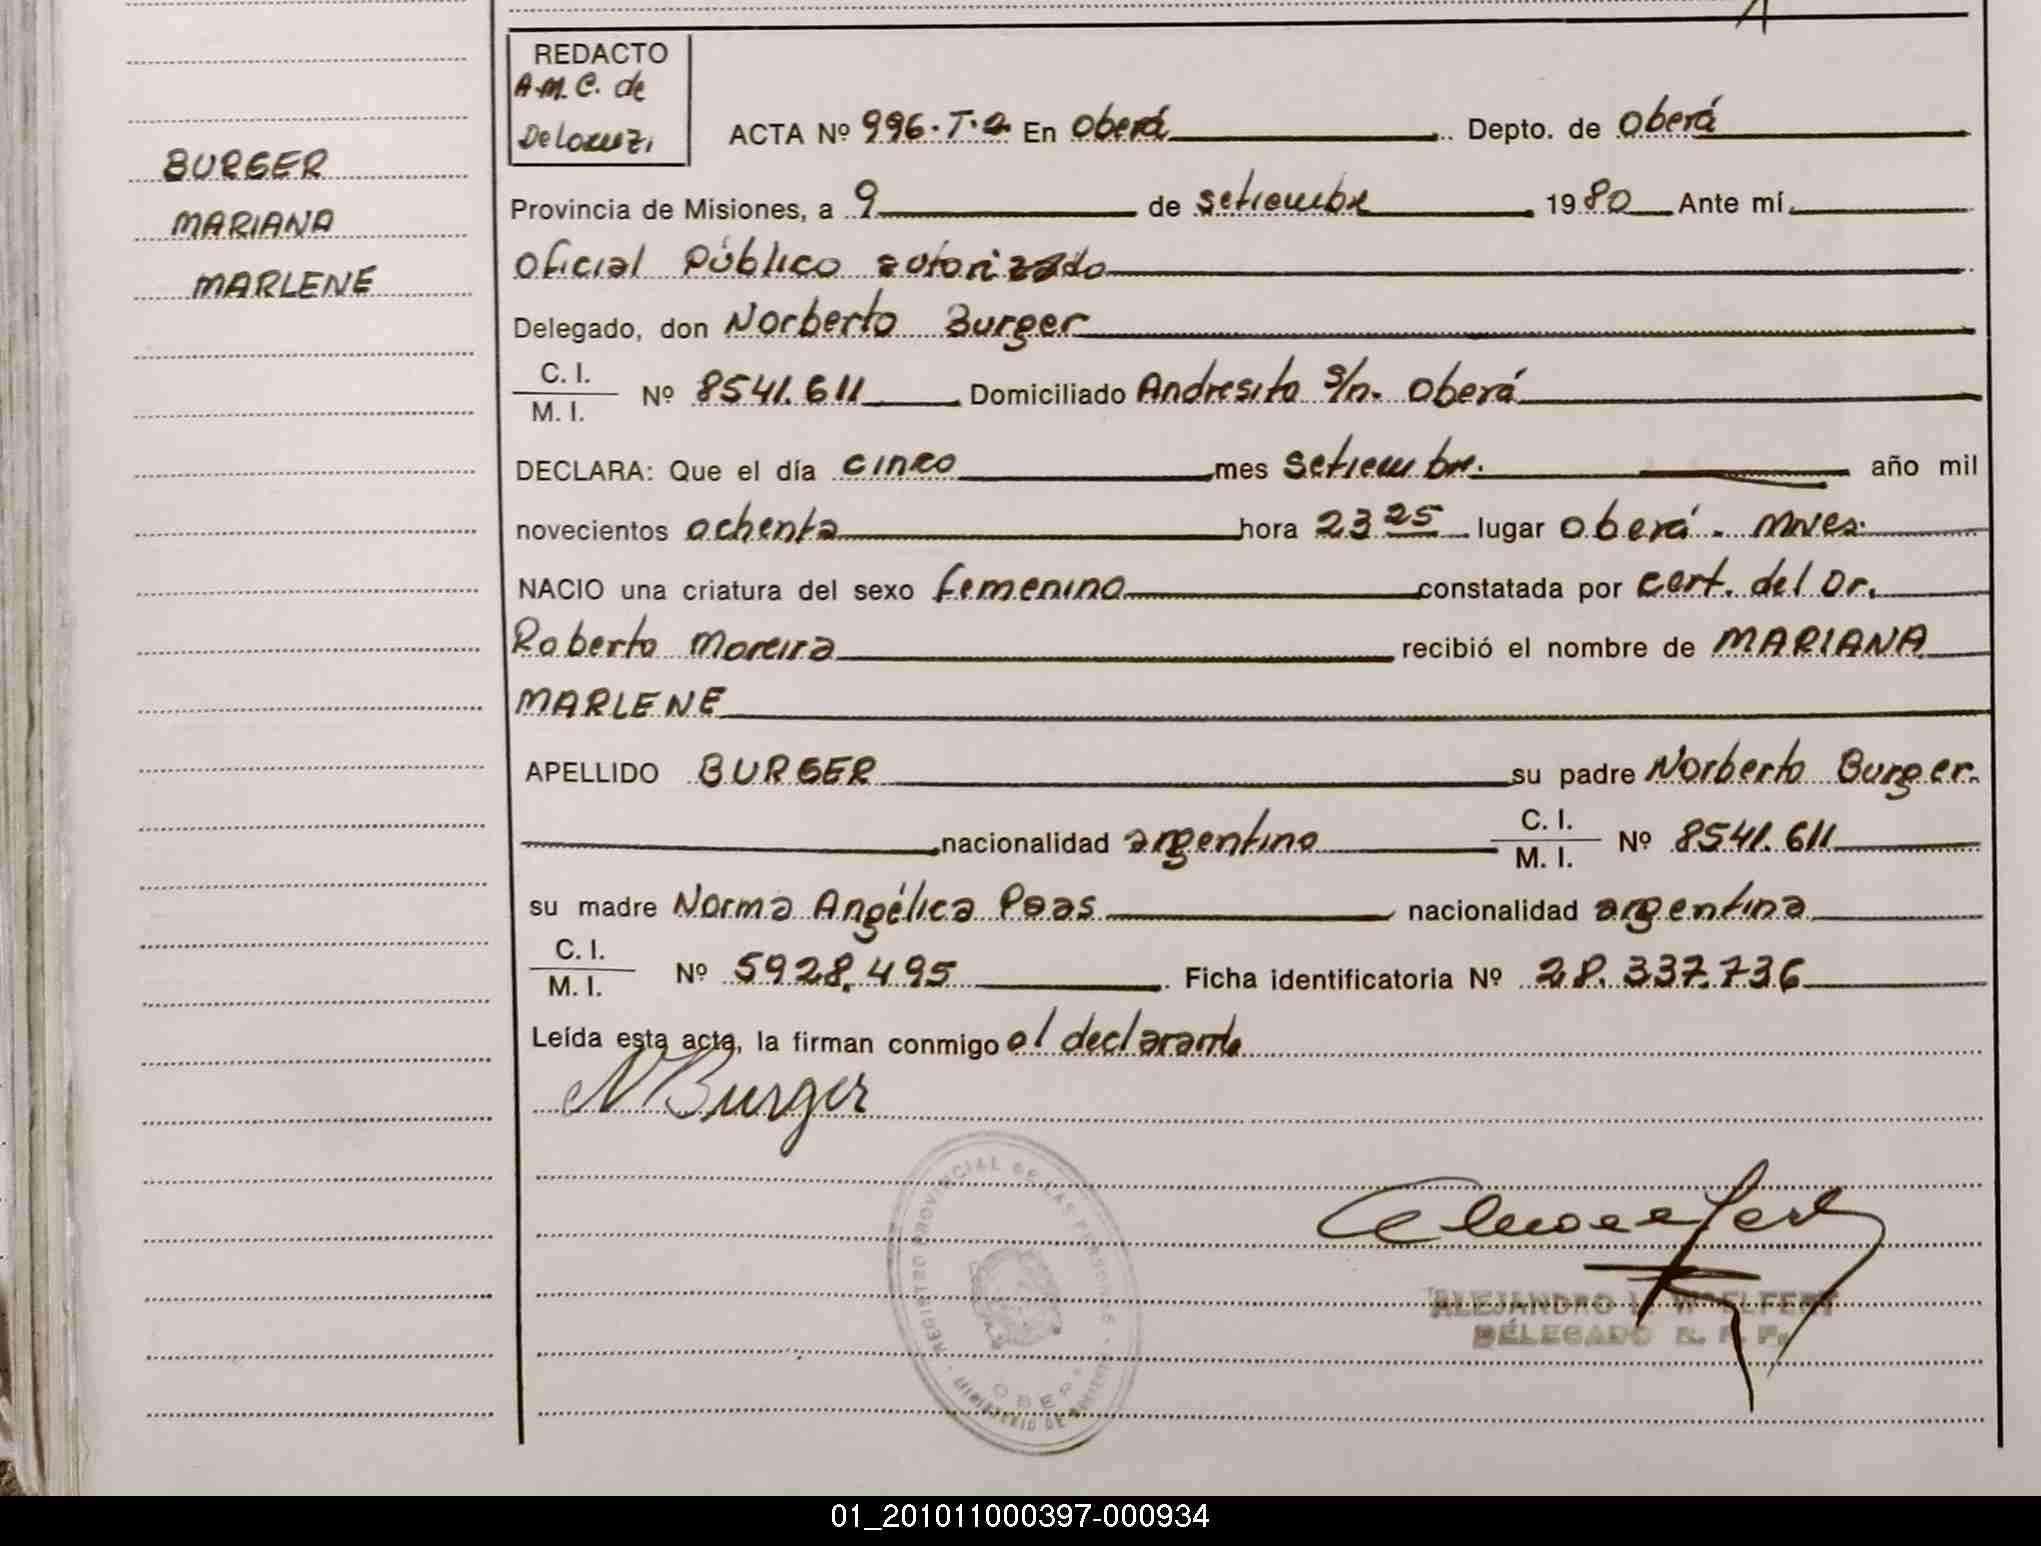 REDACTO
A.M.C. de
ACTA Nº 996. T.2. En Oberá Depto. de Oberá
BURGER
MARIANA
MARLENE
Provincia de Misiones, a 9 de setiembre 1980 Ante mí
Oficial Público autorizado
Delegado, don Norberto Burger
C. I.
M. I. Nº 8541.611 Domiciliado Andresito s/n. Oberá
DECLARA: Que el día cinco mes setiembre. año mil
novecientos ochenta hora 23 25 lugar Oberá. Mnes.
NACIO una criatura del sexo femenino constatada por cert. del Dr.
Roberto Moreira recibió el nombre de MARIANA
MARLENE
APELLIDO BURGER su padre Norberto Burger.
nacionalidad argentino C. I.
M. I. Nº 8541.611
su madre Norma Angélica Paas nacionalidad argentina
C. I.
M. I. Nº 5928.495 Ficha identificatoria Nº 28.337.736
Leída esta acta, la firman conmigo el declarante
N Burger
REGISTRO PROVINCIAL DE LAS PERSONAS
MINISTERIO DE
OBERA
ALEJANDRO L. WOELFERT
DELEGADO R. P. P.
01_201011000397-000934